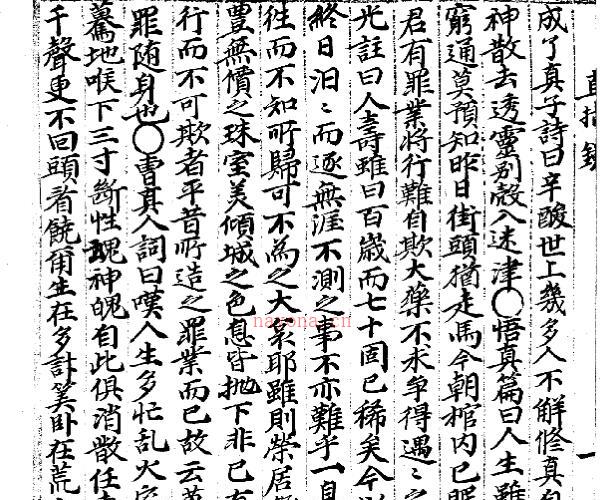 直指錄 一
成了真子詩曰辛酸世上幾多人不解修真自
神散去透靈别殼入迷津〇悟真篇曰人生雖
窮通莫預知昨日街頭猶走馬今朝棺内已眠
君有罪業將行難自欺大藥不求争得遇之
光註曰人壽雖曰百歲而七十固已稀矣今以
終日汨〻而逐無涯不測之事不亦難乎一自
徃而不知所歸可不為之大哀耶雖則榮居
豐無價之珠室美傾城之色息皆抛下非已有
行而不可欺者平昔所造之罪業而已故云萬
罪随身也〇曹真人詞曰嘆人生多忙乱火宅
驀地喉下三寸斷性魂神魄自此俱消散任
千聲更不回頭看饒爾生在多計筭卧在荒
nayona.cn